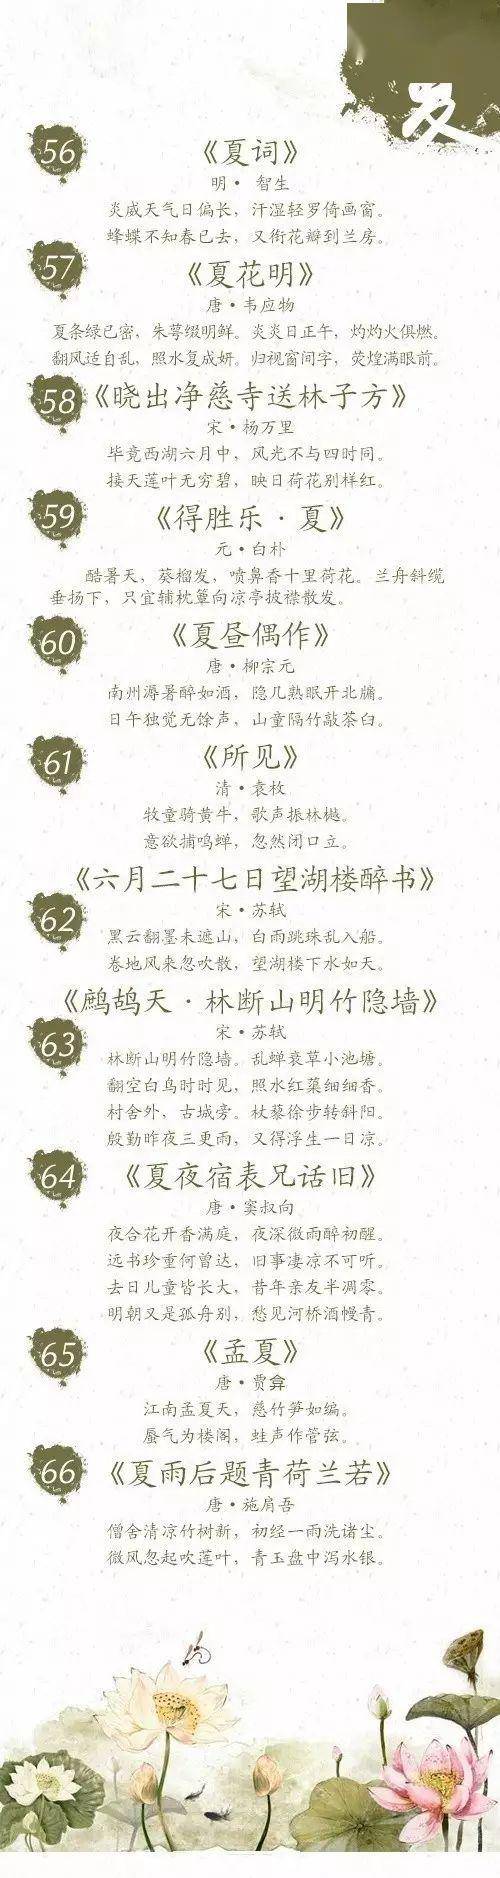 夏
56
《夏词》
明·智生
炎威天气日偏长，汗湿轻罗倚画窗。
蜂蝶不知春已去，又衔花瓣到兰房。
57
《夏花明》
唐·韦应物
夏条绿已密，朱萼缀明鲜。炎炎日正午，灼灼火俱燃。
翻风适自乱，照水复成妍。归视窗间字，荧煌满眼前。
58
《晓出净慈寺送林子方》
宋·杨万里
毕竟西湖六月中，风光不与四时同。
接天莲叶无穷碧，映日荷花别样红。
59
《得胜乐·夏》
元·白朴
酷暑天，葵榴发，喷鼻香十里荷花。兰舟斜缆
垂扬下，只宜辅枕簟向凉亭披襟散发。
60
《夏昼偶作》
唐·柳宗元
南州溽暑醉如酒，隐几熟眠开北牖。
日午独觉无馀声，山童隔竹敲茶臼。
61
《所见》
清·袁枚
牧童骑黄牛，歌声振林樾。
意欲捕鸣蝉，忽然闭口立。
《六月二十七日望湖楼醉书》
62
宋·苏轼
黑云翻墨未遮山，白雨跳珠乱入船。
卷地风来忽吹散，望湖楼下水如天。
《鹧鸪天·林断山明竹隐墙》
63
宋·苏轼
林断山明竹隐墙。乱蝉衰草小池塘。
翻空白鸟时时见，照水红蕖细细香。
村舍外，古城旁。杖藜徐步转斜阳。
殷勤昨夜三更雨，又得浮生一日凉。
64
《夏夜宿表兄话旧》
唐·窦叔向
夜合花开香满庭，夜深微雨醉初醒。
远书珍重何曾达，旧事凄凉不可听。
去日儿童皆长大，昔年亲友半凋零。
明朝又是孤舟别，愁见河桥酒幔青。
65
《孟夏》
唐·贾弇
江南孟夏天，慈竹笋如编。
蜃气为楼阁，蛙声作管弦。
66
《夏雨后题青荷兰若》
唐·施肩吾
僧舍清凉竹树新，初经一雨洗诸尘。
微风忽起吹莲叶，青玉盘中泻水银。